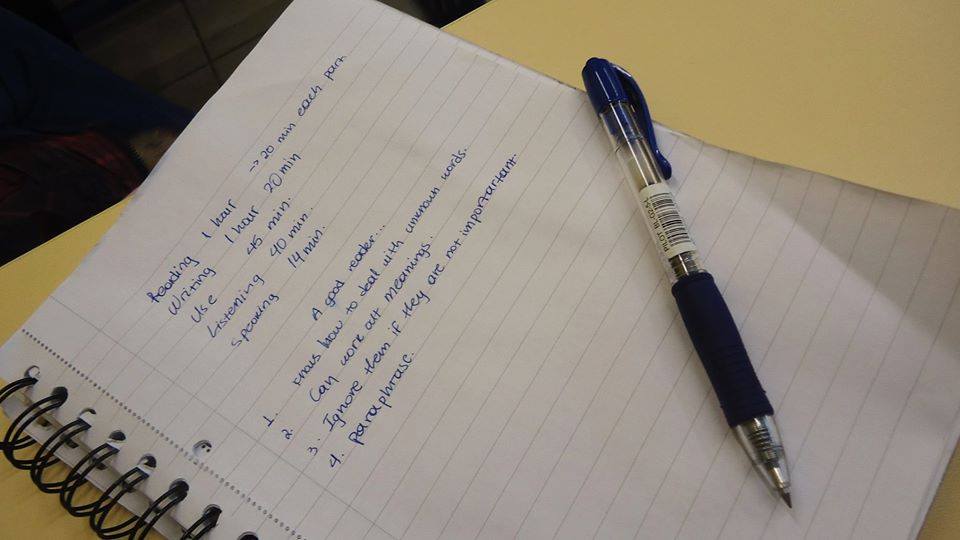 Reading 1 hour -> 20 min each part
Writing 1 hour 20 min
Use 45 min.
Listening 40 min.
Speaking 14 min.
A good reader...
1. Knows how to deal with unknown words.
2. Can work out meanings.
3. Ignore them if they are not importartant.
4. paraphrase.